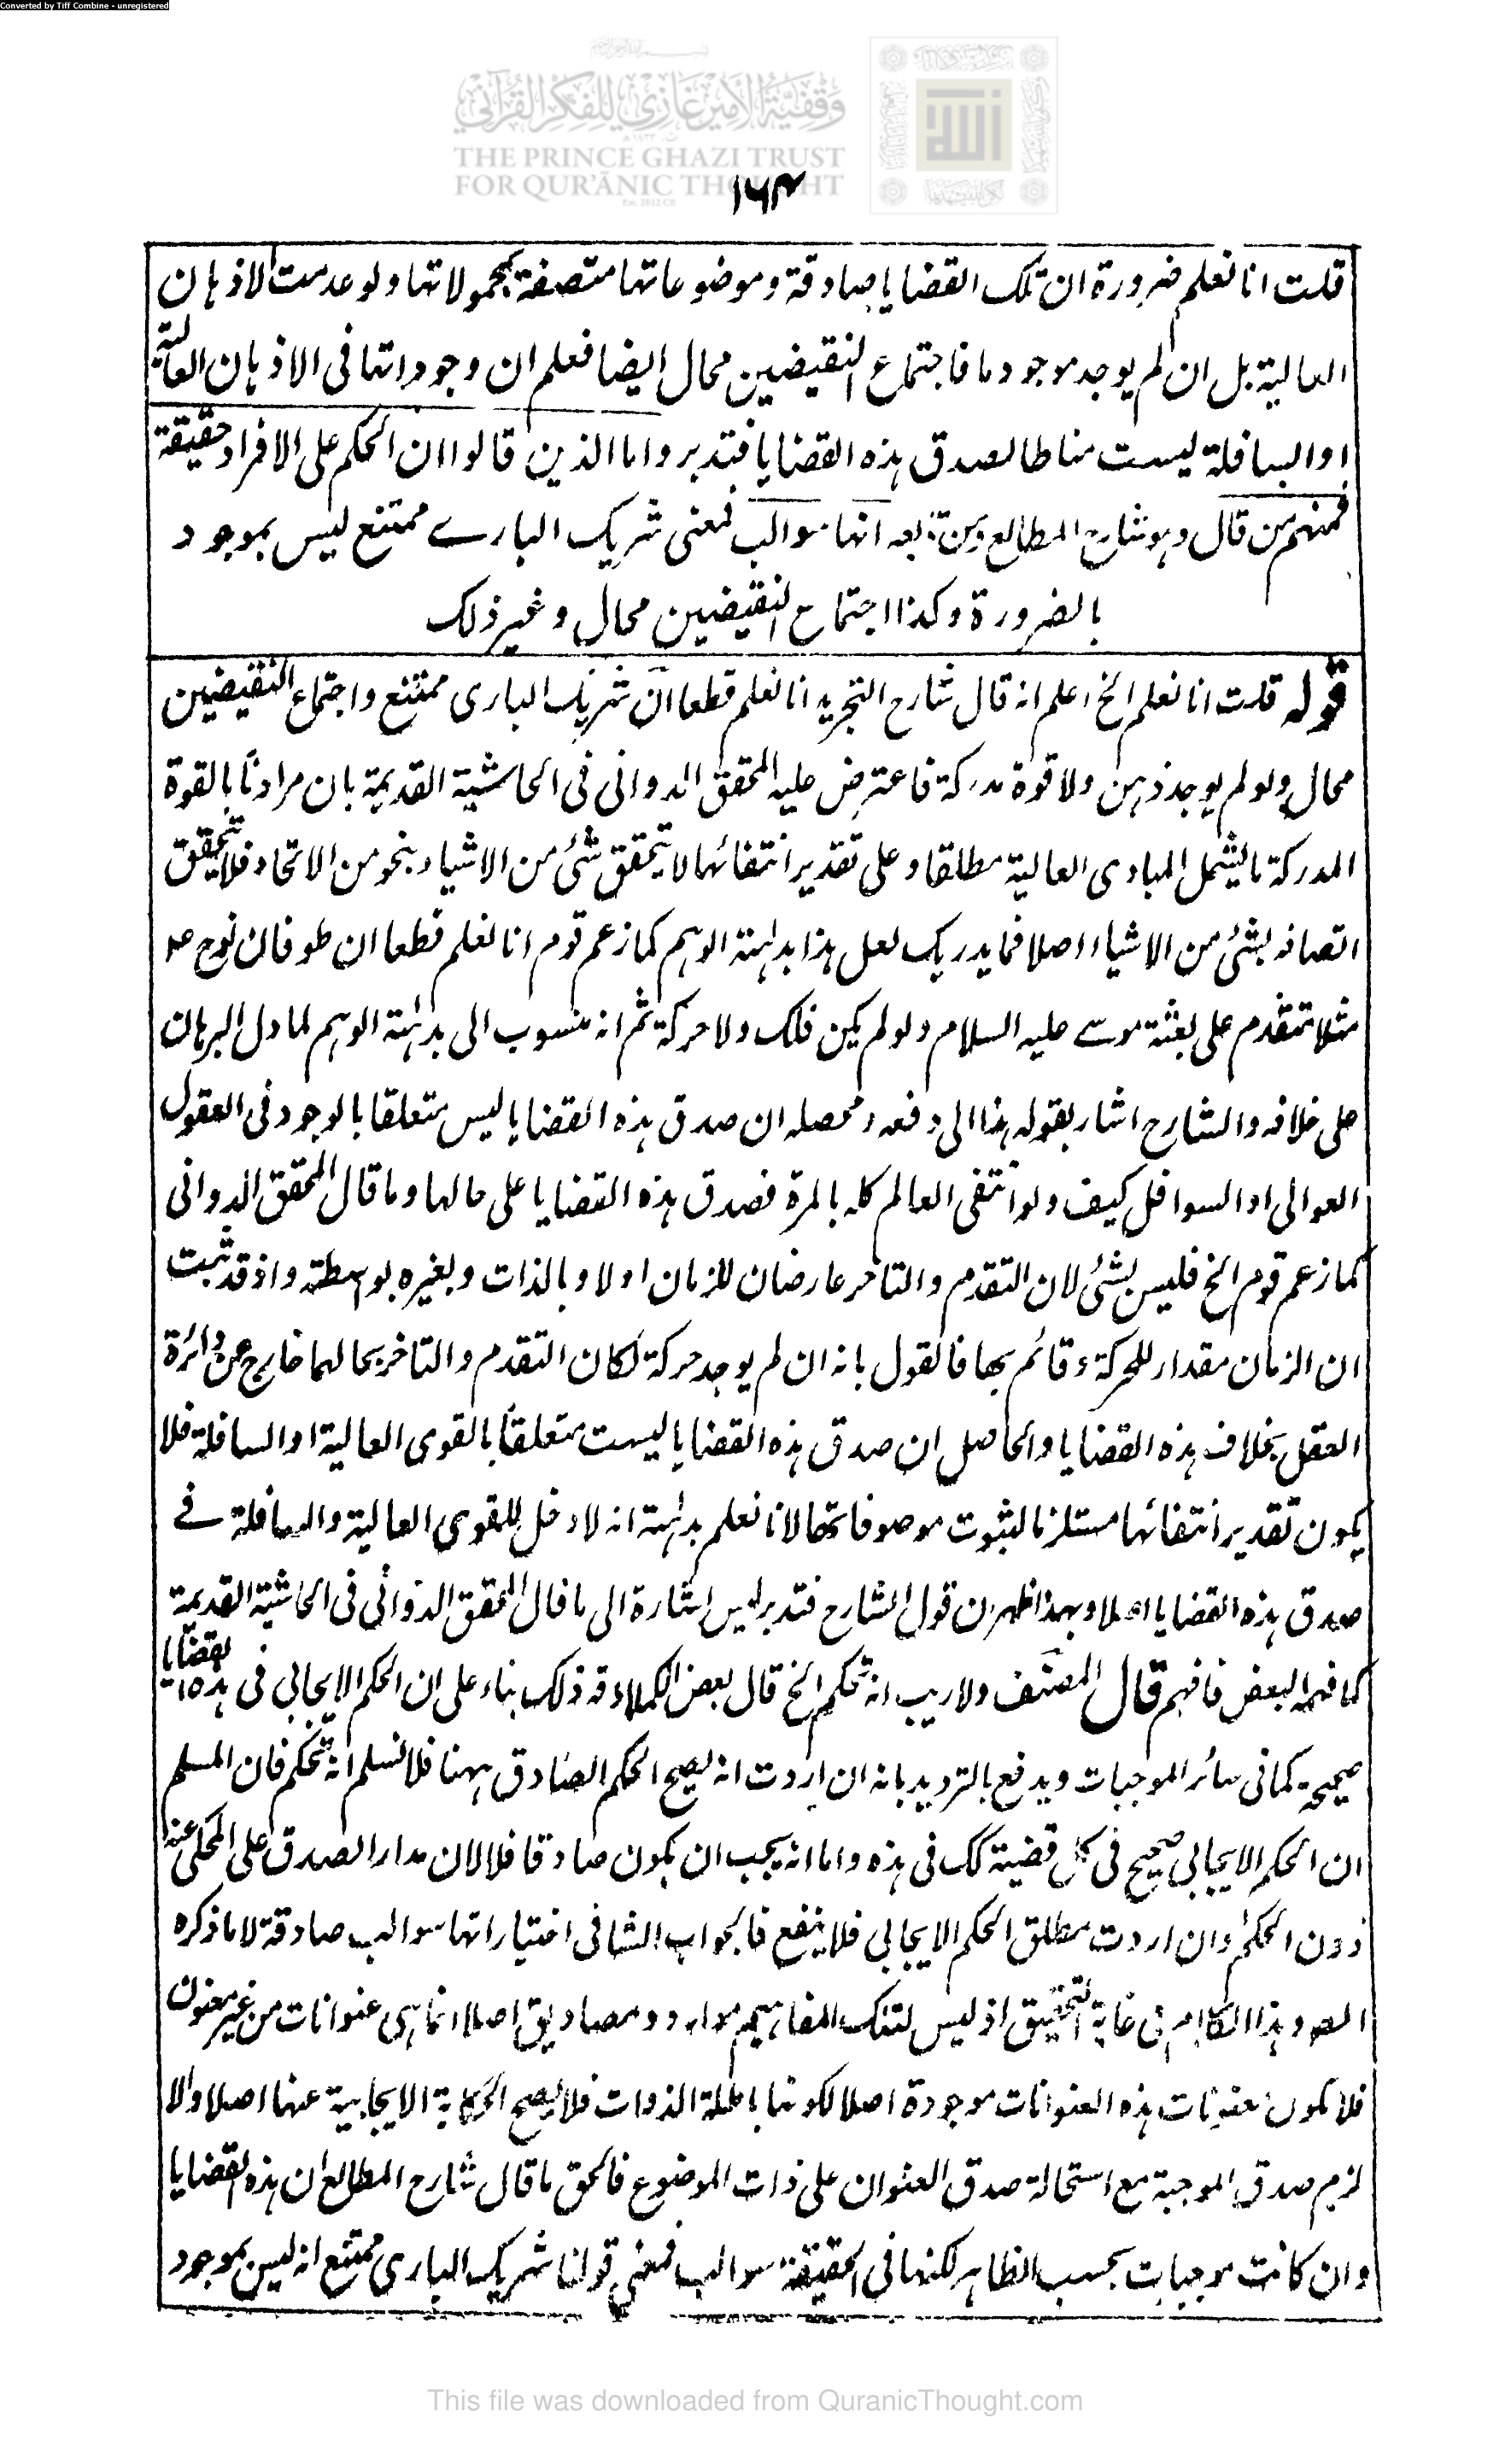 Converted by Tiff Combine - unregistered
وقفية الأمير غازي للفكر القرآني
THE PRINCE GHAZI TRUST
FOR QUR'ĀNIC THOUGHT
١٦٤
قلت انا نعلم ضرورة ان تلك القضايا صادقة وموضوعاتها متصفة بمحمولاتها ولو عدمت الاذهان
العالية بل ان لم يوجد موجود ما فاجتماع النقيضين محال ايضا فعلم ان وجوداتها فى الاذهان العالية
او السافلة ليست مناطا لصدق هذه القضايا فتدبر واما الذين قالوا ان الحكم على الافراد حقيقة
فمنهم من قال وهو شارح المطالع ومن تابعه انها سوالب فمعنى شريك البارے ممتنع ليس بموجود
بالضرورة وكذا اجتماع النقيضين محال وغير ذلك
قوله قلت انا نعلم الخ اعلم انه قال شارح التجريد انا نعلم قطعا ان شريك البارى ممتنع واجتماع النقيضين
محال ولو لم يوجد ذهن ولا قوة مدركة فاعترض عليه المحقق الدوانى فى الحاشية القديمة بان مرادنا بالقوة
المدركة ما يشمل المبادى العالية مطلقا وعلى تقدير انتفائها لا يتحقق شئ من الاشياء بنحو من الاتحاد فلا يتحقق
اتصافه بشئ من الاشياء اصلا فما يدريك لعل هذا بداهة الوهم كما زعم قوم انا نعلم قطعا ان طوفان نوح عم
مثلا متقدم على بعثة موسے عليه السلام ولو لم يكن فلك ولا حركة ثم انه منسوب الى بداهة الوهم لما دل البرهان
على خلافه والشارح اشار بقوله هذا الى دفعه ومحصله ان صدق هذه القضايا ليس متعلقا بالوجود فى العقول
العوالى او السوافل كيف ولو انتفى العالم كله بالمرة فصدق هذه القضايا على حالها وما قال المحقق الدوانى
كما زعم قوم الخ فليس بشئ لان التقدم والتاخر عارضان للزمان اولا وبالذات ولغيره بواسطته واذ قد ثبت
ان الزمان مقدار للحركة وقائم بها فالقول بانه ان لم يوجد حركة لكان التقدم والتاخر بحالهما خارج عن دائرة
العقل بخلاف هذه القضايا والحاصل ان صدق هذه القضايا ليست متعلقا بالقوى العالية او السافلة فلا
يكون تقدير انتفائها مستلزما لثبوت موصوفاتها لانا نعلم بداهة انه لا دخل للقوى العالية والسافلة فے
صدق هذه القضايا اصلا وبهذا ظهر ان قول الشارح فتدبر ليس اشارة الى ما قال المحقق الدوانى فى الحاشية القديمة
كما فهمه البعض فافهم قال المصنف ولا ريب انه تحكم الخ قال بعض الكملاء قه ذلك بناء على ان الحكم الايجابى فى هذه القضايا
صحيحة كما فى سائر الموجبات ويدفع بالترديد بانه ان اردت انه يصح الحكم الصادق ههنا فلا نسلم انه تحكم فان المسلم
ان الحكم الايجابى صحيح فى كل قضية كك فى هذه واما انه يجب ان يكون صادقا فلا لان مدار الصدق على المحكى عنه
دون الحكم وان اردت مطلق الحكم الايجابى فلا ينفع فالجواب الشافى اختيار انها سوالب صادقة لا ما ذكره
المصـ وهذا الكلام فى غاية التحقيق اذ ليس لتلك المفاهيم موارد ومصاديق اصلا انما هى عنوانات من غير معنون
فلا تكون معنونات هذه العنوانات موجودة اصلا لكونها باطلة الذوات فلا يصح الحكاية الايجابية عنها اصلا والا
لزم صدق الموجبة مع استحالة صدق العنوان على ذات الموضوع فالحق ما قال شارح المطالع ان هذه القضايا
وان كانت موجبات بحسب الظاهر لكنها فى الحقيقة سوالب فمعنى قولنا شريك البارى ممتنع انه ليس بموجود
This file was downloaded from QuranicThought.com